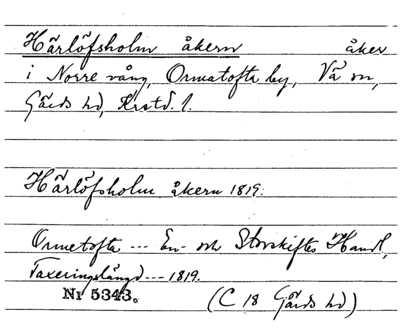 Härlöfsholm åkern åker
i Norre vång, Ormatofta by, Vä sn,
Gärds hd, Kristd. l.
Härlöfsholm åkern 1819.
Ormetofta --- En- och Storskiftes Handl,
Taxeringslängd --- 1819.
Nr 5343.
(C 18 Gärds hd)